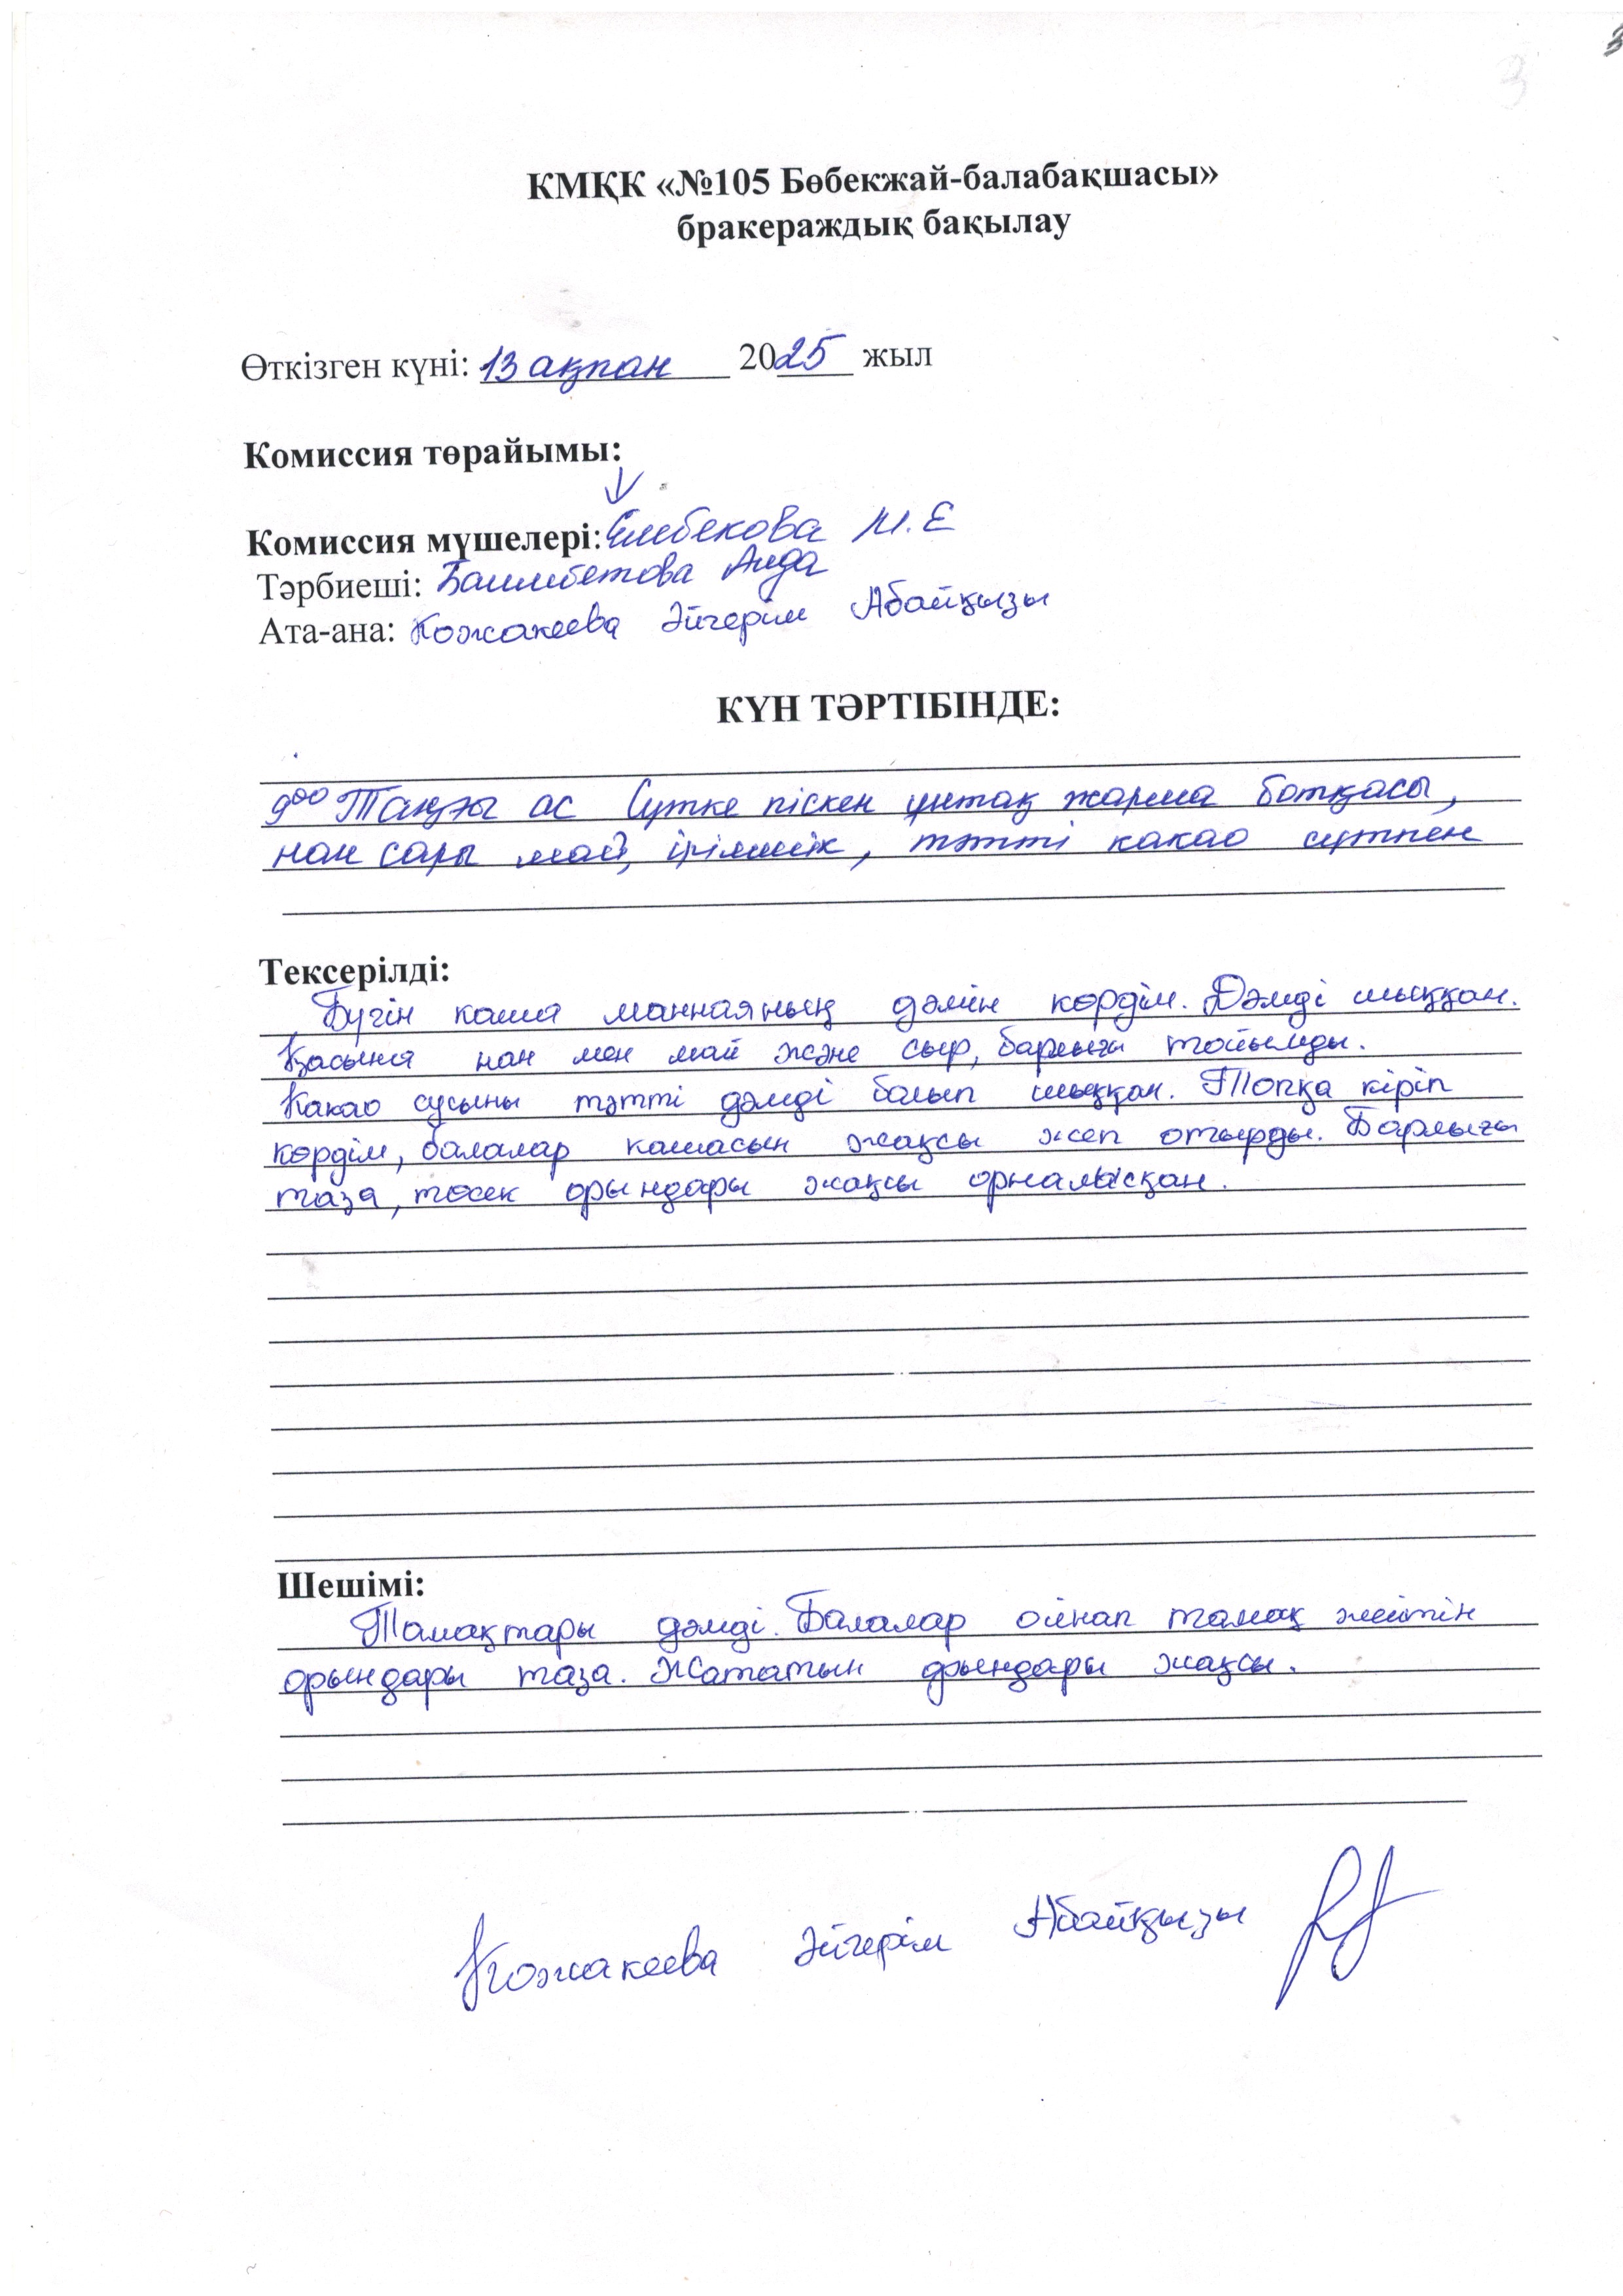 3
КМҚК «№105 Бөбекжай-балабақшасы»
бракераждық бақылау
Өткізген күні: 13 ақпан 2025 жыл
Комиссия төрайымы:
Комиссия мүшелері: Елибекова М.Е
Тәрбиеші: Башимбетова Аида
Ата-ана: Кожакеева Әйгерім Абайқызы
КҮН ТӘРТІБІНДЕ:
9⁰⁰ Таңғы ас Сүтке піскен ұнтақ жарма ботқасы,
нан сары май, ірімшік, тәтті какао сүтпен
Тексерілді:
Бүгін каша маннаяның дәмін көрдім. Дәмді шыққан.
Қасына нан мен май және сыр, барлығы тойымды.
Какао сусыны тәтті дәмді болып шыққан. Топқа кіріп
көрдім, балалар кашасын жақсы жеп отырды. Барлығы
таза, төсек орындары жақсы орналысқан.
Шешімі:
Тамақтары дәмді. Балалар ойнап тамақ жейтін
орындары таза. Жататын орындары жақсы.
Кожакеева Әйгерім Абайқызы